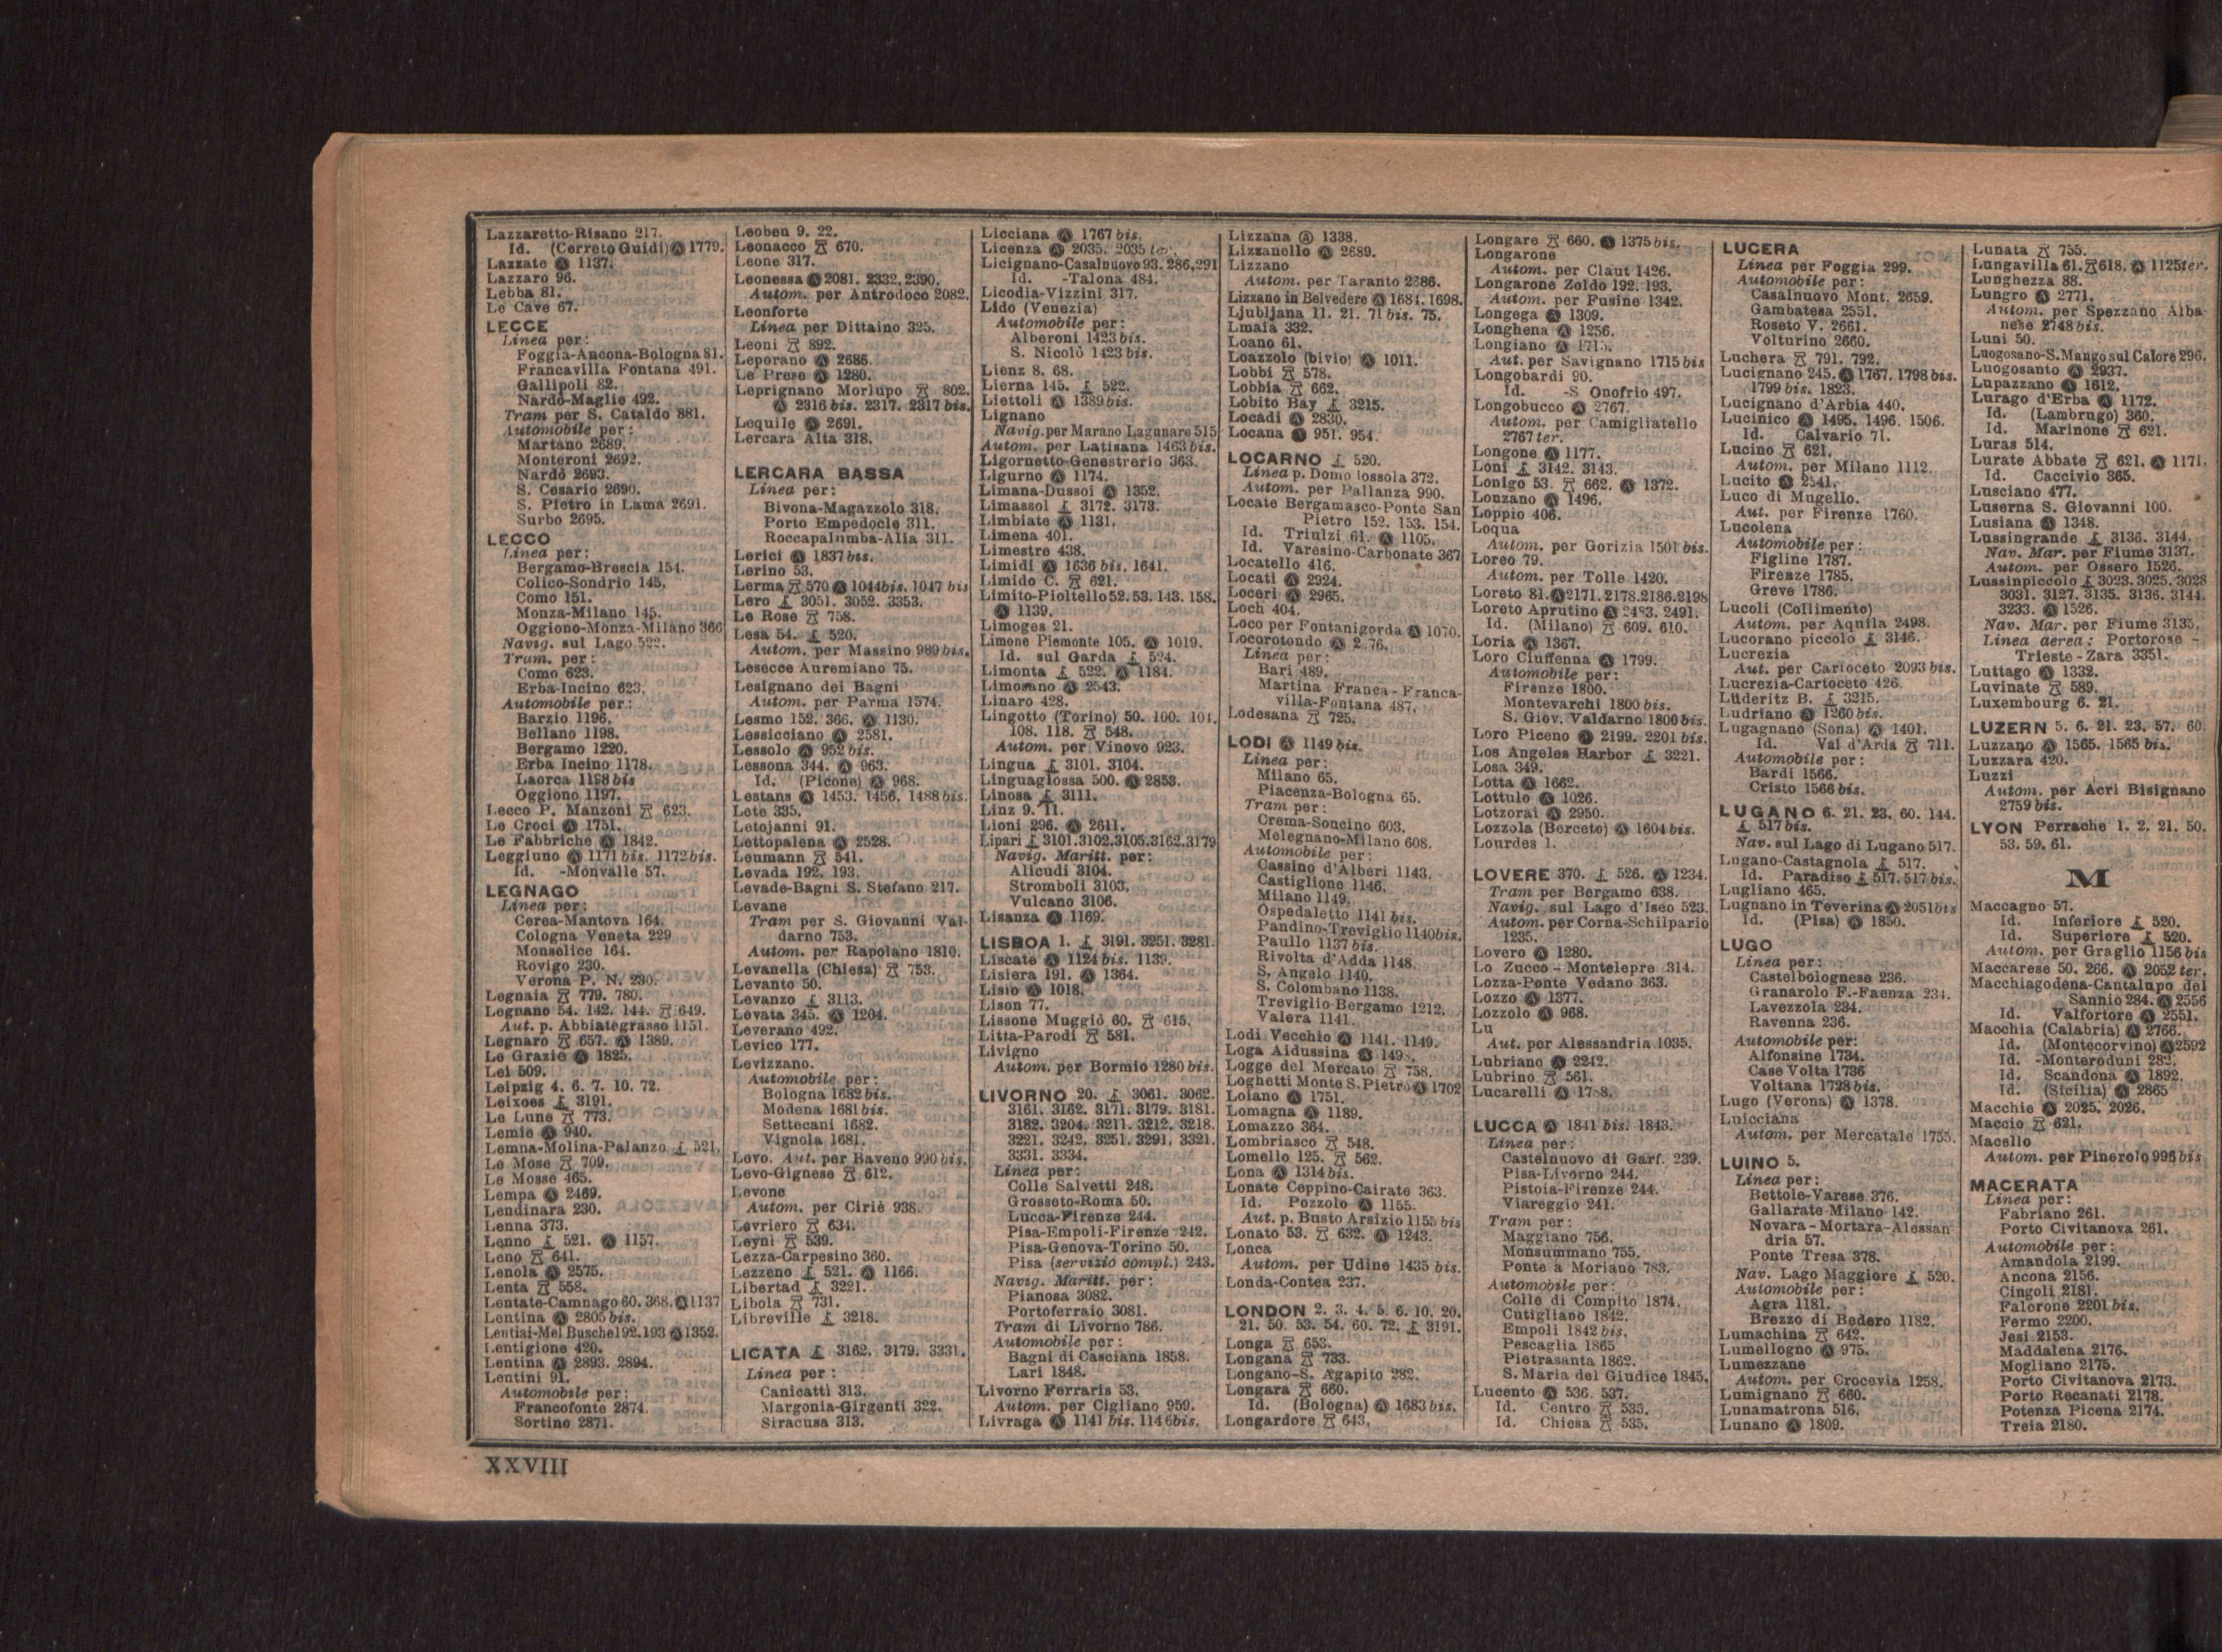 Lazzaretto-Risano 217.
Id. (Cerreto Guidi) Ⓐ 1779.
Lazzate Ⓐ 1137.
Lazzaro 96.
Lebba 81.
Le Cave 67.
LECCE
Linea per:
Foggia-Ancona-Bologna 81.
Francavilla Fontana 491.
Gallipoli 82.
Nardò-Maglie 492.
Tram per S. Cataldo 881.
Automobile per:
Martano 2689.
Monteroni 2692.
Nardò 2693.
S. Cesario 2690.
S. Pietro in Lama 2691.
Surbo 2695.
LECCO
Linea per:
Bergamo-Brescia 154.
Colico-Sondrio 145.
Como 151.
Monza-Milano 145.
Oggiono-Monza-Milano 366
Navig. sul Lago 522.
Tram. per:
Como 623.
Erba-Incino 623.
Automobile per:
Barzio 1196.
Bellano 1198.
Bergamo 1220.
Erba Incino 1178.
Laorca 1198 bis
Oggiono 1197.
Lecco P. Manzoni 623.
Le Croci Ⓐ 1751.
Le Fabbriche Ⓐ 1842.
Leggiuno Ⓐ 1171 bis. 1172 bis.
Id. -Monvalle 57.
LEGNAGO
Linea per:
Cerea-Mantova 164.
Cologna Veneta 229
Monselice 164.
Rovigo 230.
Verona P. N. 230.
Legnaia 779. 780.
Legnano 54. 142. 144. 649.
Aut. p. Abbiategrasso 1151.
Legnaro 657. Ⓐ 1389.
Le Grazie Ⓐ 1825.
Lei 509.
Leipzig 4. 6. 7. 10. 72.
Leixoes 3191.
Le Lune 773.
Lemie Ⓐ 940.
Lemna-Molina-Palanzo 521.
Le Mose 709.
Le Mosse 465.
Lempa Ⓐ 2469.
Lendinara 230.
Lenna 373.
Lenno 521. Ⓐ 1157.
Leno 641.
Lenola Ⓐ 2575.
Lenta 558.
Lentate-Camnago 60. 368. Ⓐ 1137
Lentina Ⓐ 2805 bis.
Lentiai-Mel Busche 192. 193 Ⓐ 1352.
Lentigione 420.
Lentina Ⓐ 2893. 2894.
Lentini 91.
Automobile per:
Francofonte 2874.
Sortino 2871.
Leoben 9. 22.
Leonacco 670.
Leone 317.
Leonessa Ⓐ 2081. 2332. 2390.
Autom. per Antrodoco 2082.
Leonforte
Linea per Dittaino 325.
Leoni 892.
Leporano Ⓐ 2686.
Le Prese Ⓐ 1280.
Leprignano Morlupo 802.
Ⓐ 2316 bis. 2317. 2317 bis.
Lequile Ⓐ 2691.
Lercara Alta 318.
LERCARA BASSA
Linea per:
Bivona-Magazzolo 318.
Porto Empedocle 311.
Roccapalumba-Alia 311.
Lerici Ⓐ 1837 bis.
Lerino 53.
Lerma 570 Ⓐ 1044 bis. 1047 bis
Lero 3051. 3052. 3353.
Le Rose 758.
Lesa 54. 520.
Autom. per Massino 989 bis.
Lesecce Auremiano 75.
Lesignano dei Bagni
Autom. per Parma 1574.
Lesmo 152. 366. Ⓐ 1130.
Lessicciano Ⓐ 2581.
Lessolo Ⓐ 952 bis.
Lessona 344. Ⓐ 963.
Id. (Picone) Ⓐ 968.
Lestans Ⓐ 1453. 1456. 1488 bis.
Lete 335.
Letojanni 91.
Lettopalena Ⓐ 2528.
Leumann 541.
Levada 192. 193.
Levade-Bagni S. Stefano 217.
Levane
Tram per S. Giovanni Val-
darno 753.
Autom. per Rapolano 1810.
Levanella (Chiesa) 753.
Levanto 50.
Levanzo 3113.
Levata 345. Ⓐ 1204.
Leverano 492.
Levico 177.
Levizzano.
Automobile per:
Bologna 1682 bis.
Modena 1681 bis.
Settecani 1682.
Vignola 1681.
Levo. Aut. per Baveno 990 bis.
Levo-Gignese 612.
Levone
Autom. per Ciriè 938.
Levriero 634.
Leyni 539.
Lezza-Carpesino 360.
Lezzeno 521. Ⓐ 1166.
Libertad 3221.
Libola 731.
Libreville 3218.
LICATA 3162. 3179. 3331.
Linea per:
Canicattì 313.
Margonia-Girgenti 322.
Siracusa 313.
Licciana Ⓐ 1767 bis.
Licenza Ⓐ 2035. 2035 ter.
Licignano-Casalnuovo 93. 286. 291
Id. -Talona 484.
Licodia-Vizzini 317.
Lido (Venezia)
Automobile per:
Alberoni 1423 bis.
S. Nicolò 1423 bis.
Lienz 8. 68.
Lierna 145. 522.
Liettoli Ⓐ 1389 bis.
Lignano
Navig. per Marano Lagunare 515
Autom. per Latisana 1463 bis.
Ligornetto-Genestrerio 363.
Ligurno Ⓐ 1174.
Limana-Dussoi Ⓐ 1352.
Limassol 3172. 3173.
Limbiate Ⓐ 1131.
Limena 401.
Limestre 438.
Limidi Ⓐ 1636 bis. 1641.
Limido C. 621.
Limito-Pioltello 52. 53. 143. 158.
Ⓐ 1139.
Limoges 21.
Limone Piemonte 105. Ⓐ 1019.
Id. sul Garda 524.
Limonta 522. Ⓐ 1184.
Limosano Ⓐ 2543.
Linaro 428.
Lingotto (Torino) 50. 100. 101.
108. 118. 548.
Autom. per Vinovo 923.
Lingua 3101. 3104.
Linguaglossa 500. Ⓐ 2853.
Linosa 3111.
Linz 9. 11.
Lioni 296. Ⓐ 2611.
Lipari 3101. 3102. 3105. 3162. 3179
Navig. Maritt. per:
Alicudi 3104.
Stromboli 3103.
Vulcano 3106.
Lisanza Ⓐ 1169.
LISBOA 1. 3191. 3251. 3281.
Liscate Ⓐ 1124 bis. 1139.
Lisiera 191. Ⓐ 1364.
Lisio Ⓐ 1018.
Lison 77.
Lissone Muggiò 60. 615.
Litta-Parodi 581.
Livigno
Autom. per Bormio 1280 bis.
LIVORNO 20. 3061. 3062.
3161. 3162. 3171. 3179. 3181.
3182. 3204. 3211. 3212. 3218.
3221. 3242. 3251. 3291. 3321.
3331. 3334.
Linea per:
Colle Salvetti 248.
Grosseto-Roma 50.
Lucca-Firenze 244.
Pisa-Empoli-Firenze 242.
Pisa-Genova-Torino 50.
Pisa (servizio compl.) 243.
Navig. Maritt. per:
Pianosa 3082.
Portoferraio 3081.
Tram di Livorno 786.
Automobile per:
Bagni di Casciana 1858.
Lari 1848.
Livorno Ferraris 53.
Autom. per Cigliano 959.
Livraga Ⓐ 1141 bis. 1146 bis.
Lizzana Ⓐ 1338.
Lizzanello Ⓐ 2689.
Lizzano
Autom. per Taranto 2686.
Lizzano in Belvedere Ⓐ 1681. 1698.
Ljubljana 11. 21. 71 bis. 75.
Lmaia 332.
Loano 61.
Loazzolo (bivio) Ⓐ 1011.
Lobbi 578.
Lobbia 662.
Lobito Bay 3215.
Locadi Ⓐ 2830.
Locana Ⓐ 951. 954.
LOCARNO 520.
Linea p. Domodossola 372.
Autom. per Pallanza 990.
Locate Bergamasco-Ponte San
Pietro 152. 153. 154.
Id. Triulzi 61. Ⓐ 1105.
Id. Varesino-Carbonate 367
Locatello 416.
Locati Ⓐ 2924.
Loceri Ⓐ 2965.
Loch 404.
Loco per Fontanigorda Ⓐ 1070.
Locorotondo Ⓐ
Linea per:
Bari 489.
Martina Franca-Franca-
villa-Fontana 487.
Lodesana 725.
LODI Ⓐ 1149 bis.
Linea per:
Milano 65.
Piacenza-Bologna 65.
Tram per:
Crema-Soncino 603.
Melegnano-Milano 608.
Automobile per:
Cassino d'Alberi 1143.
Castiglione 1146.
Milano 1149.
Ospedaletto 1141 bis.
Pandino-Treviglio 1140 bis.
Paullo 1137 bis.
Rivolta d'Adda 1148.
S. Angelo 1140.
S. Colombano 1138.
Treviglio-Bergamo 1212.
Valera 1141.
Lodi Vecchio Ⓐ 1141. 1149.
Loga Aidussina Ⓐ
Logge del Mercato 758.
Loghetti Monte S. Pietro Ⓐ 1702
Loiano Ⓐ 1751.
Lomagna Ⓐ 1189.
Lomazzo 364.
Lombriasco 548.
Lomello 125. 562.
Lona Ⓐ 1314 bis.
Lonate Ceppino-Cairate 363.
Id. Pozzolo Ⓐ 1155.
Aut. p. Busto Arsizio 1155 bis
Lonato 53. 632. Ⓐ 1243.
Lonca
Autom. per Udine 1435 bis.
Londa-Contea 237.
LONDON 2. 3. 4. 5. 6. 10. 20.
21. 50. 53. 54. 60. 72. 3191.
Longa 653.
Longana 733.
Longano-S. Agapito 282.
Longara 660.
Id. (Bologna) Ⓐ 1683 bis.
Longardore 643.
Longare 660. Ⓐ 1375 bis.
Longarone
Autom. per Claut 1426.
Longarone Zoldo 192. 193.
Autom. per Fusine 1342.
Longega Ⓐ 1309.
Longhena Ⓐ 1256.
Longiano Ⓐ 1715.
Aut. per Savignano 1715 bis
Longobardi 90.
Id. -S Onofrio 497.
Longobucco Ⓐ 2767.
Autom. per Camigliatello
2767 ter.
Longone Ⓐ 1177.
Loni 3142. 3143.
Lonigo 53. 662. Ⓐ 1372.
Lonzano Ⓐ 1496.
Loppio 406.
Loqua
Autom. per Gorizia 1501 bis.
Loreo 79.
Autom. per Tolle 1420.
Loreto 81. Ⓐ 2171. 2178. 2186. 2198
Loreto Aprutino Ⓐ 2483. 2491.
Id. (Milano) 609. 610.
Loria Ⓐ 1367.
Loro Ciuffenna Ⓐ 1799.
Automobile per:
Firenze 1800.
Montevarchi 1800 bis.
S. Giov. Valdarno 1800 bis.
Loro Piceno Ⓐ 2199. 2201 bis.
Los Angeles Harbor 3221.
Losa 349.
Lotta Ⓐ 1662.
Lottulo Ⓐ 1026.
Lotzorai Ⓐ 2950.
Lozzola (Berceto) Ⓐ 1604 bis.
Lourdes 1.
LOVERE 370. 526. Ⓐ 1234.
Tram per Bergamo 638.
Navig. sul Lago d'Iseo 523.
Autom. per Corna-Schilpario
1235.
Lovero Ⓐ 1280.
Lo Zucco - Montelepre 314.
Lozza-Ponte Vedano 363.
Lozzo Ⓐ 1377.
Lozzolo Ⓐ 968.
Lu
Aut. per Alessandria 1035.
Lubriano Ⓐ 2242.
Lubrino 561.
Lucarelli Ⓐ
LUCCA Ⓐ 1841 bis. 1843.
Linea per:
Castelnuovo di Garf. 239.
Pisa-Livorno 244.
Pistoia-Firenze 244.
Viareggio 241.
Tram per:
Maggiano 756.
Monsummano 755.
Ponte a Moriano 783.
Automobile per:
Colle di Compito 1874.
Cutigliano 1842.
Empoli 1842 bis.
Pescaglia 1865
Pietrasanta 1862.
S. Maria del Giudice 1845.
Lucento Ⓐ 536. 537.
Id. Centro 535.
Id. Chiesa 535.
LUCERA
Linea per Foggia 299.
Automobile per:
Casalnuovo Mont. 2659.
Gambatesa 2551.
Roseto V. 2661.
Volturino 2660.
Luchera 791. 792.
Lucignano 245. Ⓐ 1767. 1798 bis.
1799 bis. 1823.
Lucignano d'Arbia 440.
Lucinico Ⓐ 1495. 1496. 1506.
Id. Calvario 71.
Lucino 621.
Autom. per Milano 1112.
Lucito Ⓐ 2541.
Luco di Mugello.
Aut. per Firenze 1760.
Lucolena
Automobile per:
Figline 1787.
Firenze 1785.
Greve 1786.
Lucoli (Collimento)
Autom. per Aquila 2498.
Lucorano piccolo 3146.
Lucrezia
Aut. per Cartoceto 2093 bis.
Lucrezia-Cartoceto 426.
Lüderitz B. 3215.
Ludriano Ⓐ 1260 bis.
Lugagnano (Sona) Ⓐ 1401.
Id. Val d'Arda 711.
Automobile per:
Bardi 1566.
Cristo 1566 bis.
LUGANO 6. 21. 23. 60. 144.
517 bis.
Nav. sul Lago di Lugano 517.
Lugano-Castagnola 517.
Id. Paradiso 517. 517 bis.
Lugliano 465.
Lugnano in Teverina Ⓐ 2051 bis
Id. (Pisa) Ⓐ 1850.
LUGO
Linea per:
Castelbolognese 236.
Granarolo F.-Faenza 234.
Lavezzola 234.
Ravenna 236.
Automobile per:
Alfonsine 1734.
Case Volta 1736
Voltana 1728 bis.
Lugo (Verona) Ⓐ 1378.
Luicciana
Autom. per Mercatale 1755.
LUINO 5.
Linea per:
Bettole-Varese 376.
Gallarate-Milano 142.
Novara-Mortara-Alessan
dria 57.
Ponte Tresa 378.
Nav. Lago Maggiore 520.
Automobile per:
Agra 1181.
Brezzo di Bedero 1182.
Lumachina 642.
Lumellogno Ⓐ 975.
Lumezzane
Autom. per Crocevia 1258.
Lumignano 660.
Lunamatrona 516.
Lunano Ⓐ 1809.
Lunata 755.
Lungavilla 61. 618. Ⓐ 1125 ter.
Lunghezza 88.
Lungro Ⓐ 2771.
Autom. per Spezzano Alba
nese 2748 bis.
Luni 50.
Luogosano-S. Mango sul Calore 296.
Luogosanto Ⓐ 2937.
Lupazzano Ⓐ 1612.
Lurago d'Erba Ⓐ 1172.
Id. (Lambrugo) 360.
Id. Marinone 621.
Luras 514.
Lurate Abbate 621. Ⓐ 1171.
Id. Caccivio 365.
Lusciano 477.
Luserna S. Giovanni 100.
Lusiana Ⓐ 1348.
Lussingrande 3136. 3144.
Nav. Mar. per Fiume 3137.
Autom. per Ossero 1526.
Lussinpiccolo 3023. 3025. 3028
3031. 3127. 3135. 3136. 3144.
3233. Ⓐ 1526.
Nav. Mar. per Fiume 3135.
Linea aerea: Portorose -
Trieste-Zara 3351.
Luttago Ⓐ 1332.
Luvinate 589.
Luxembourg 6. 21.
LUZERN 5. 6. 21. 23. 57. 60.
Luzzano Ⓐ 1565. 1565 bis.
Luzzara 420.
Luzzi
Autom. per Acri Bisignano
2759 bis.
LYON Perrache 1. 2. 21. 50.
53. 59. 61.
M
Maccagno 57.
Id. Inferiore 520.
Id. Superiore 520.
Autom. per Graglio 1156 bis
Maccarese 50. 266. Ⓐ 2052 ter.
Macchiagodena-Cantalupo del
Sannio 284. Ⓐ 2556
Id. Valfortore Ⓐ 2551.
Macchia (Calabria) Ⓐ 2766.
Id. (Montecorvino) Ⓐ 2592
Id. -Monteroduni 282.
Id. Scandona Ⓐ 1892.
Id. (Sicilia) Ⓐ 2865
Macchie Ⓐ 2025. 2026.
Maccio 621.
Macello
Autom. per Pinerolo 996 bis
MACERATA
Linea per:
Fabriano 261.
Porto Civitanova 261.
Automobile per:
Amandola 2199.
Ancona 2156.
Cingoli 2181.
Falerone 2201 bis.
Fermo 2200.
Jesi 2153.
Maddalena 2176.
Mogliano 2175.
Porto Civitanova 2173.
Porto Recanati 2178.
Potenza Picena 2174.
Treia 2180.
XXVIII